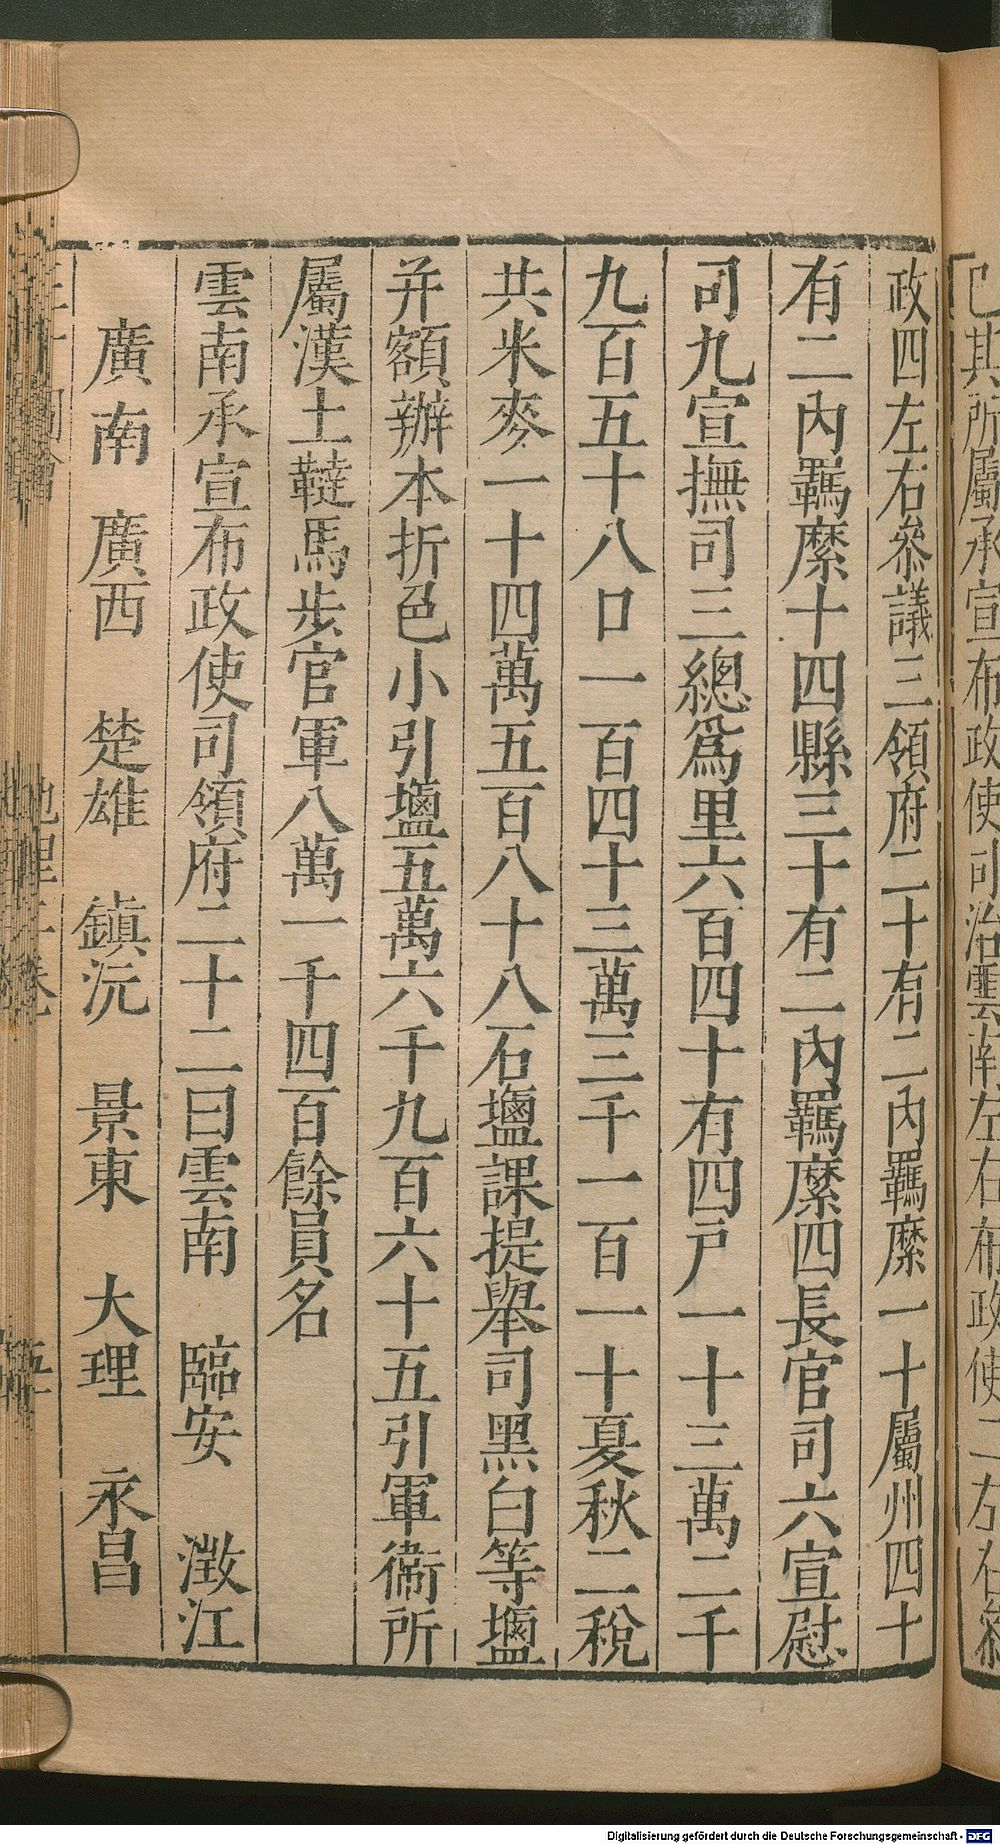 巳其所屬承宣布政使司治雲南左右布政使二左右叅
政四左右叅議三領府二十有二內羈縻一十屬州四十
有二內羈縻十四縣三十有二內羈縻四長官司六宣慰
司九宣撫司三總爲里六百四十有四戶一十三萬二千
九百五十八口一百四十三萬三千一百一十夏秋二稅
共米麥一十四萬五百八十八石鹽課提舉司黑白等鹽
幷額辦本折色小引鹽五萬六千九百六十五引軍衞所
屬漢土韃馬步官軍八萬一千四百餘員名
雲南承宣布政使司領府二十二曰雲南 臨安 澂江
廣南 廣西 楚雄 鎮沅 景東 大理 永昌
地理二卷
Digitalisierung gefördert durch die Deutsche Forschungsgemeinschaft - DFG